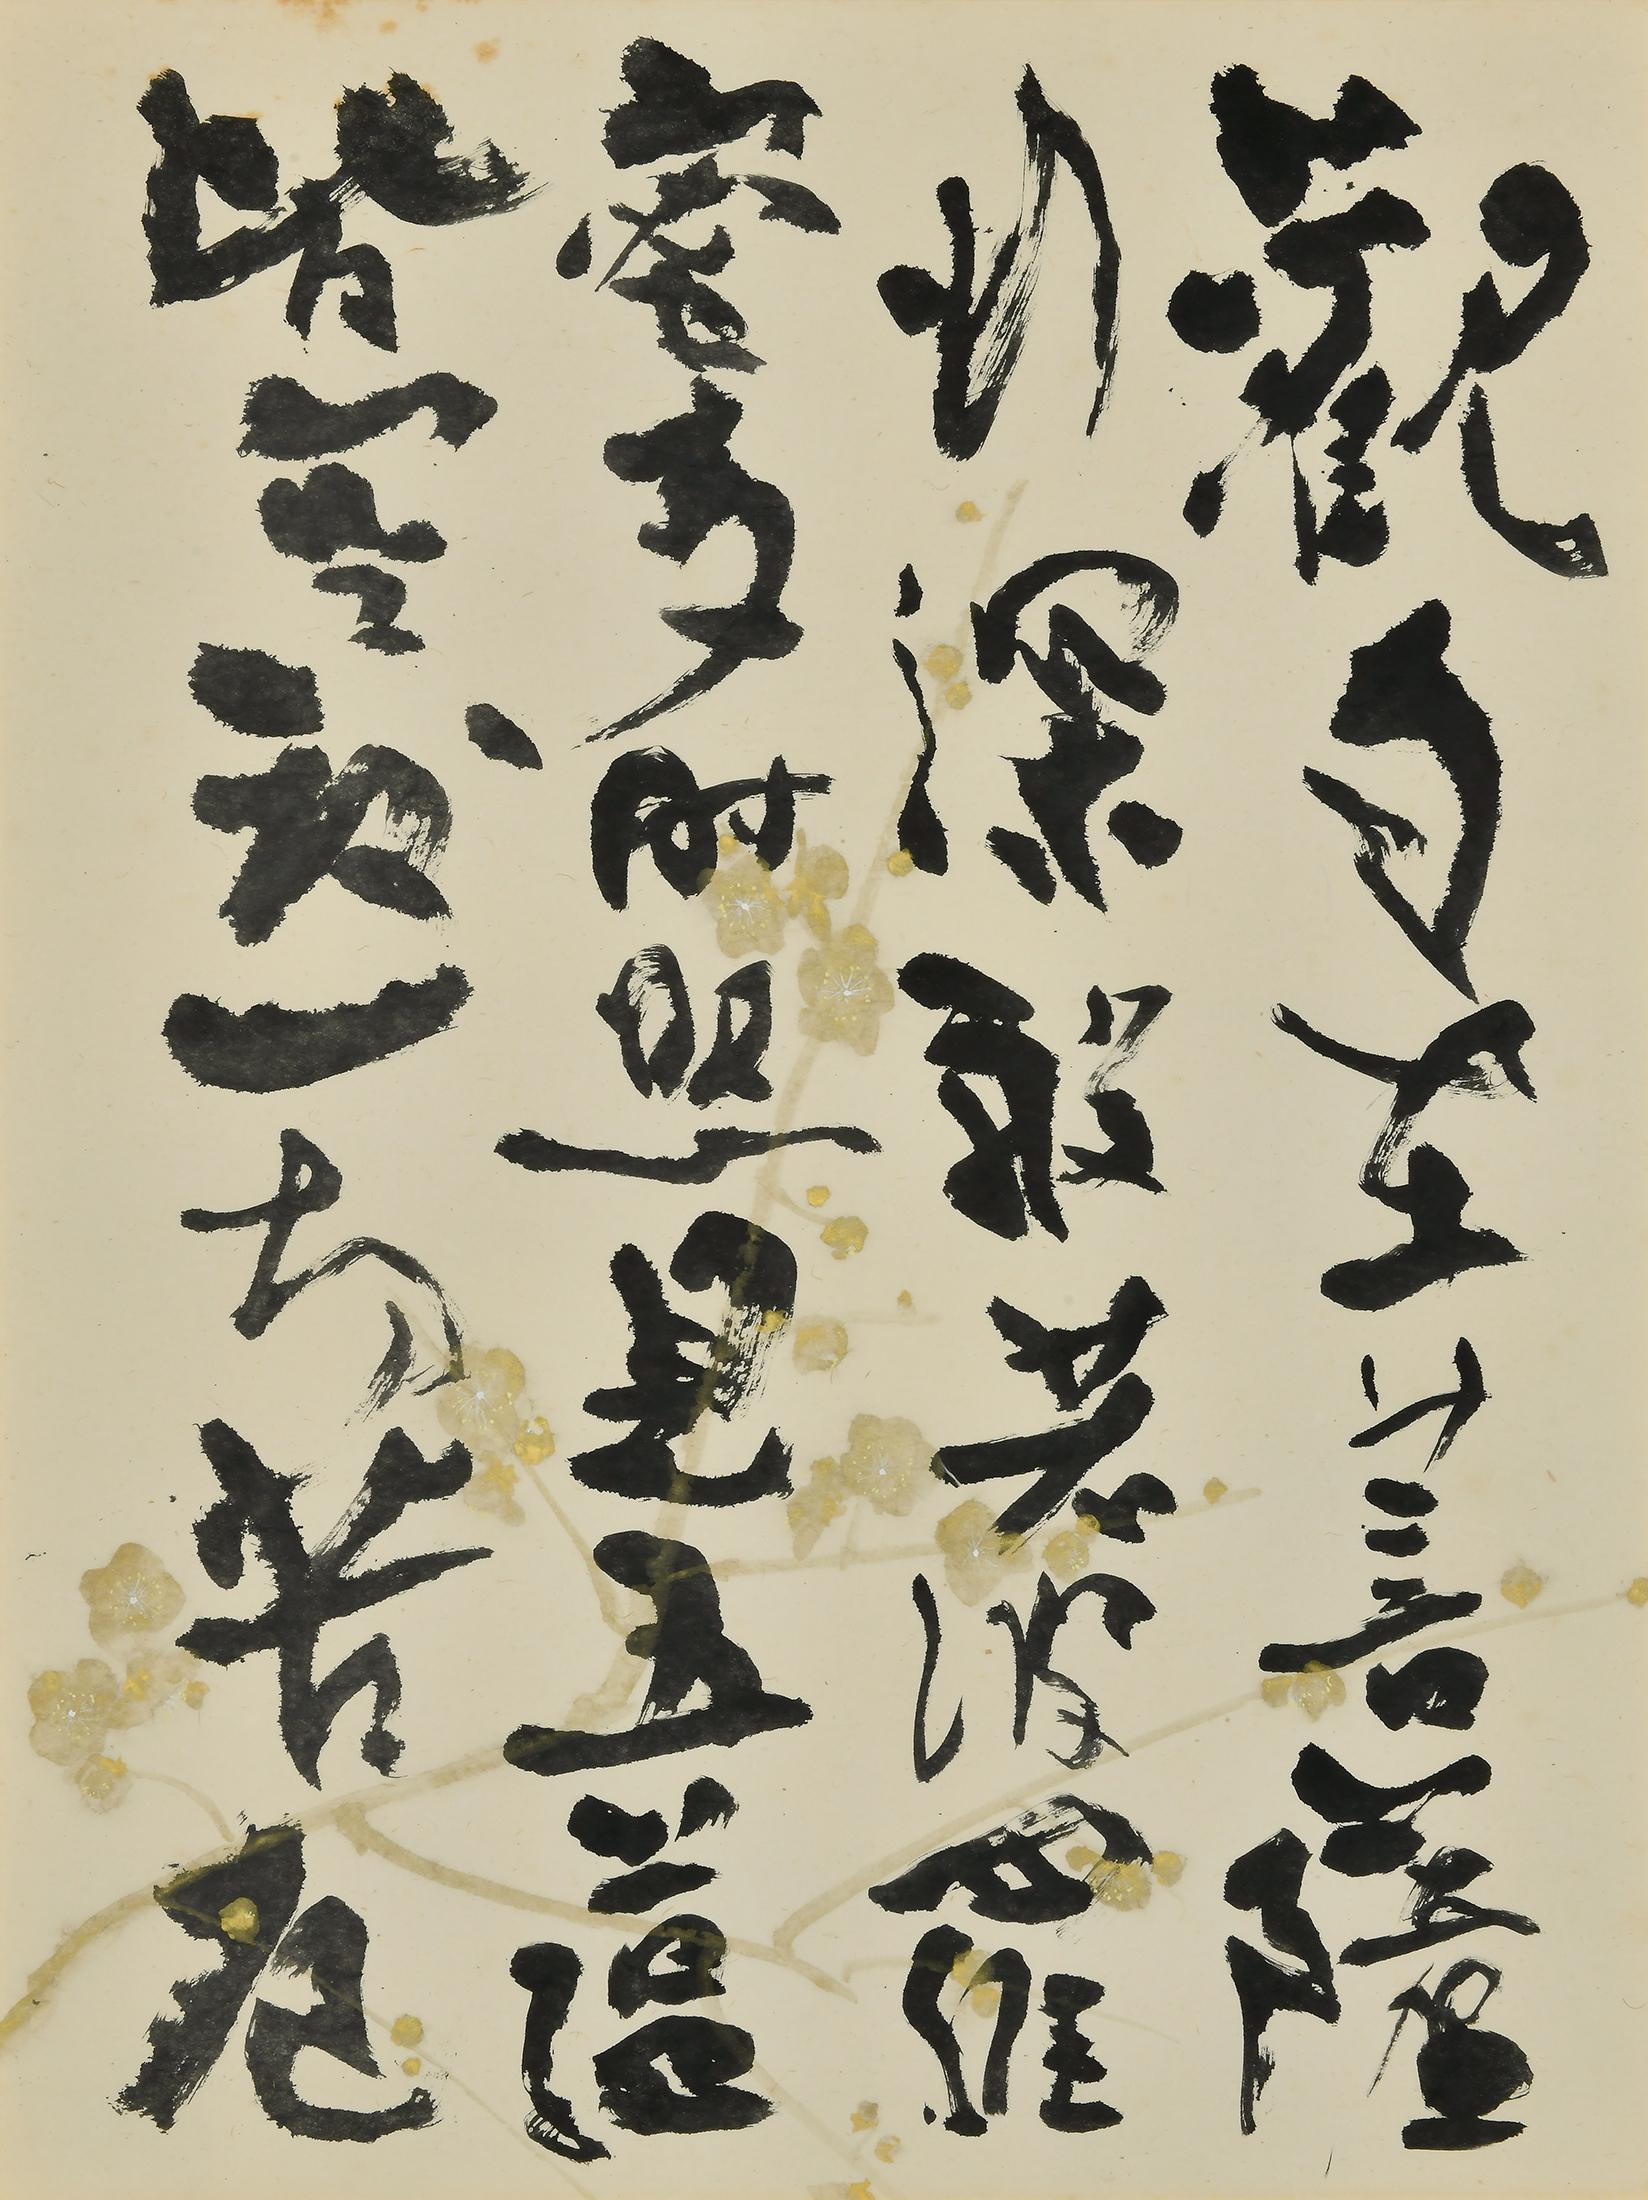 觀自在菩薩
行深般若波羅
蜜多時照見五蘊
皆空度一切苦厄